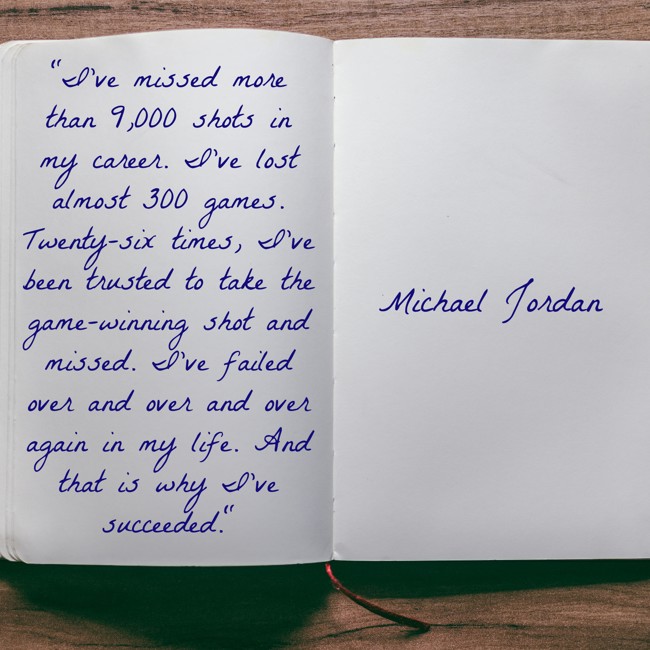 "I've missed more
than 9,000 shots in
my career. I've lost
almost 300 games.
Twenty-six times, I've
been trusted to take the
game-winning shot and
missed. I've failed
over and over and over
again in my life. And
that is why I've
succeeded."
Michael Jordan